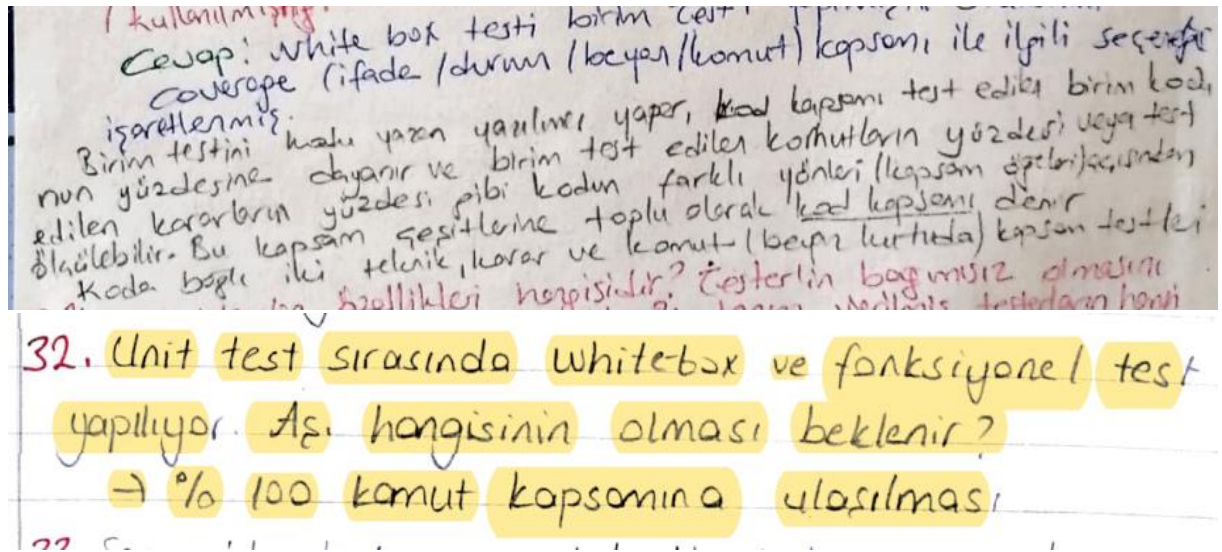 kullanılmıştır.
Cevap: White box testi birim testi
coverage (ifade/durum/beyan/komut) kapsamı ile ilgili seçeneği
işaretlenmiş.
Birim testini kodu yazan yazılımcı yapar, kod kapsamı test edilen birim kodu
nun yüzdesine dayanır ve birim test edilen komutların yüzdesi veya test
edilen kararların yüzdesi gibi kodun farklı yönleri (kapsam ögeleri) açısından
ölçülebilir. Bu kapsam çeşitlerine toplu olarak kod kapsamı denir
Koda bağlı iki teknik, karar ve komut (beyaz kutuda) kapsam testleri
özellikleri hangisidir? Testerlin bağımsız olmasını
verilmiş testlerden hangi
32. Unit test sırasında whitebox ve fonksiyonel test
yapılıyor. Aş. hangisinin olması beklenir?
→ % 100 komut kapsamına ulaşılması